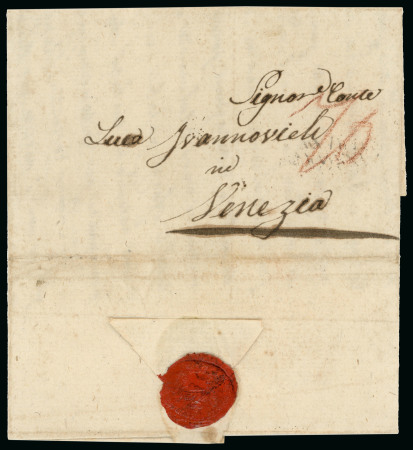 Signore Conte
Luca Ivannovich
in
Venezia